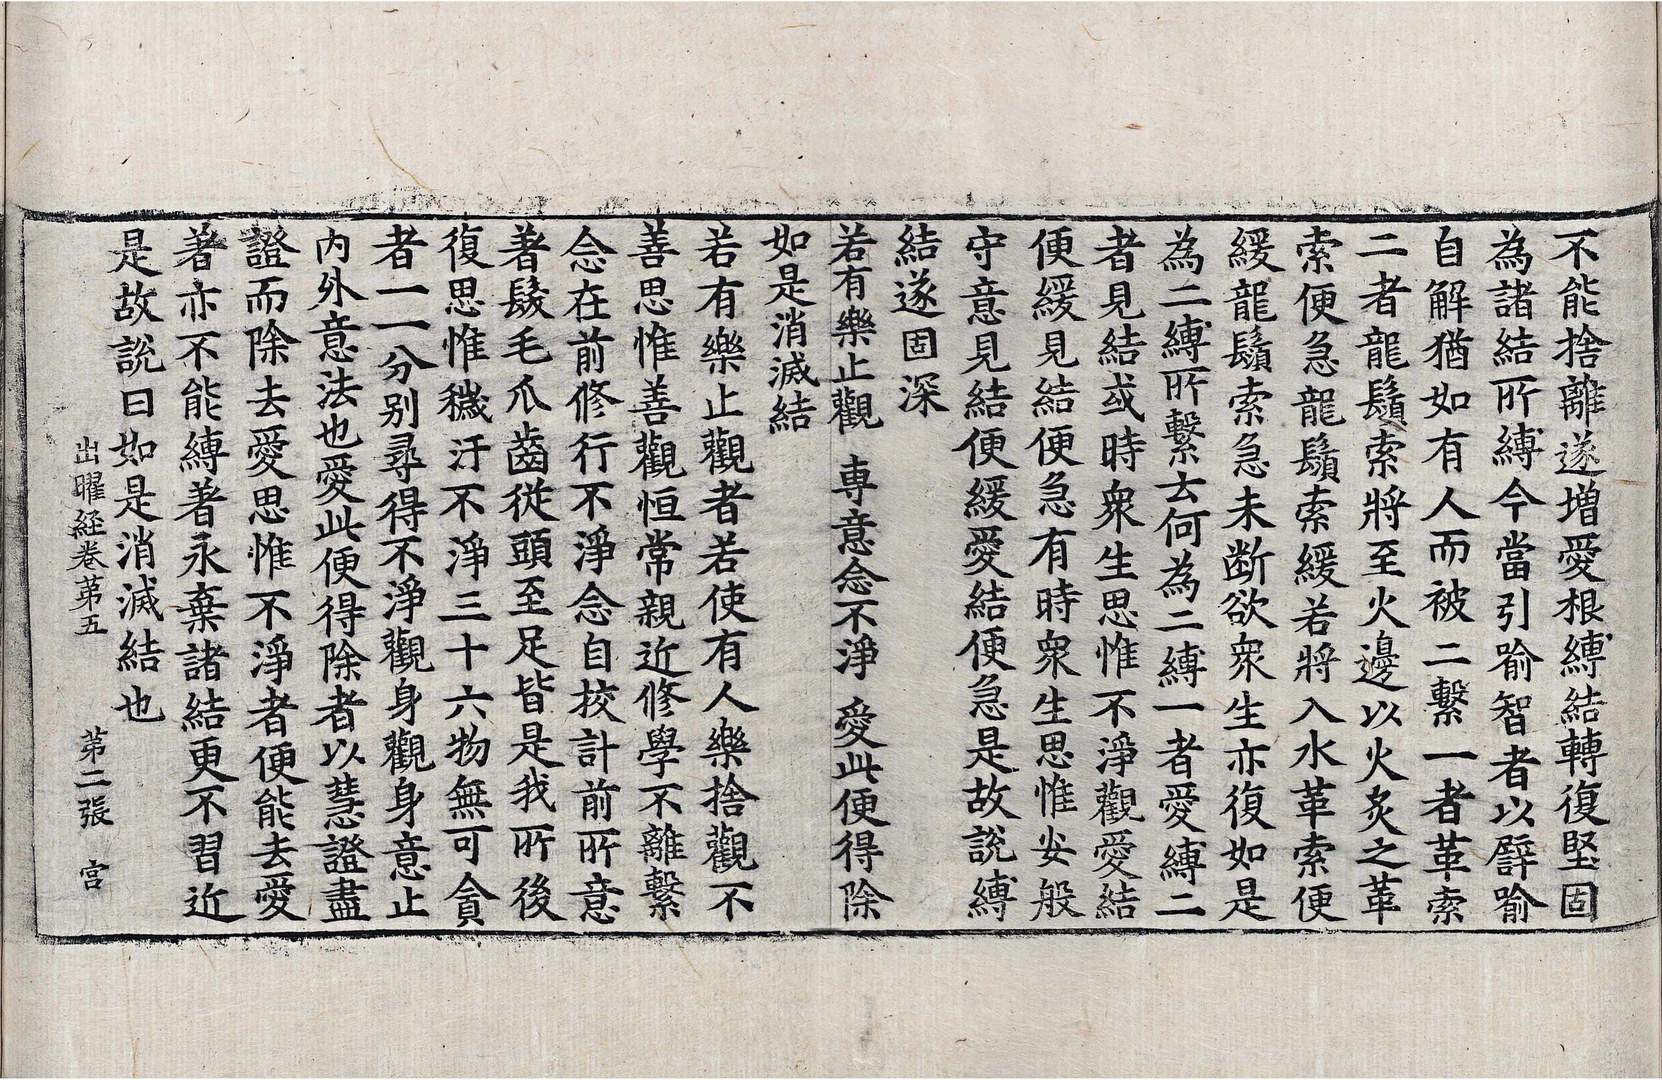 不能捨離遂増愛根縛結轉復堅固
為諸結所縛今當引喻智者以譬喻
自解猶如有人而被二繫一者革索
二者龍鬚索將至火邊以火炙之革
索便急龍鬚索緩若將入水革索便
緩龍鬚索急未断欲衆生亦復如是
為二縛所繫云何為二縛一者愛縛二
者見結或時衆生思惟不淨觀愛結
便緩見結便急有時衆生思惟安般
守意見結便緩愛結便急是故説縛
結遂固深
若有樂止觀 専意念不淨 愛此便得除
如是消滅結
若有樂止觀者若使有人樂捨觀不
善思惟善觀恒常親近修學不離繫
念在前修行不淨念自挍計前所意
著髮毛爪齒從頭至足皆是我所後
復思惟穢汙不淨三十六物無可貪
者一一分別尋得不淨觀身觀身意止
內外意法也愛此便得除者以慧證盡
證而除去愛思惟不淨者便能去愛
著亦不能縛著永棄諸結更不習近
是故説曰如是消滅結也
出曜経卷苐五 苐二張 宮